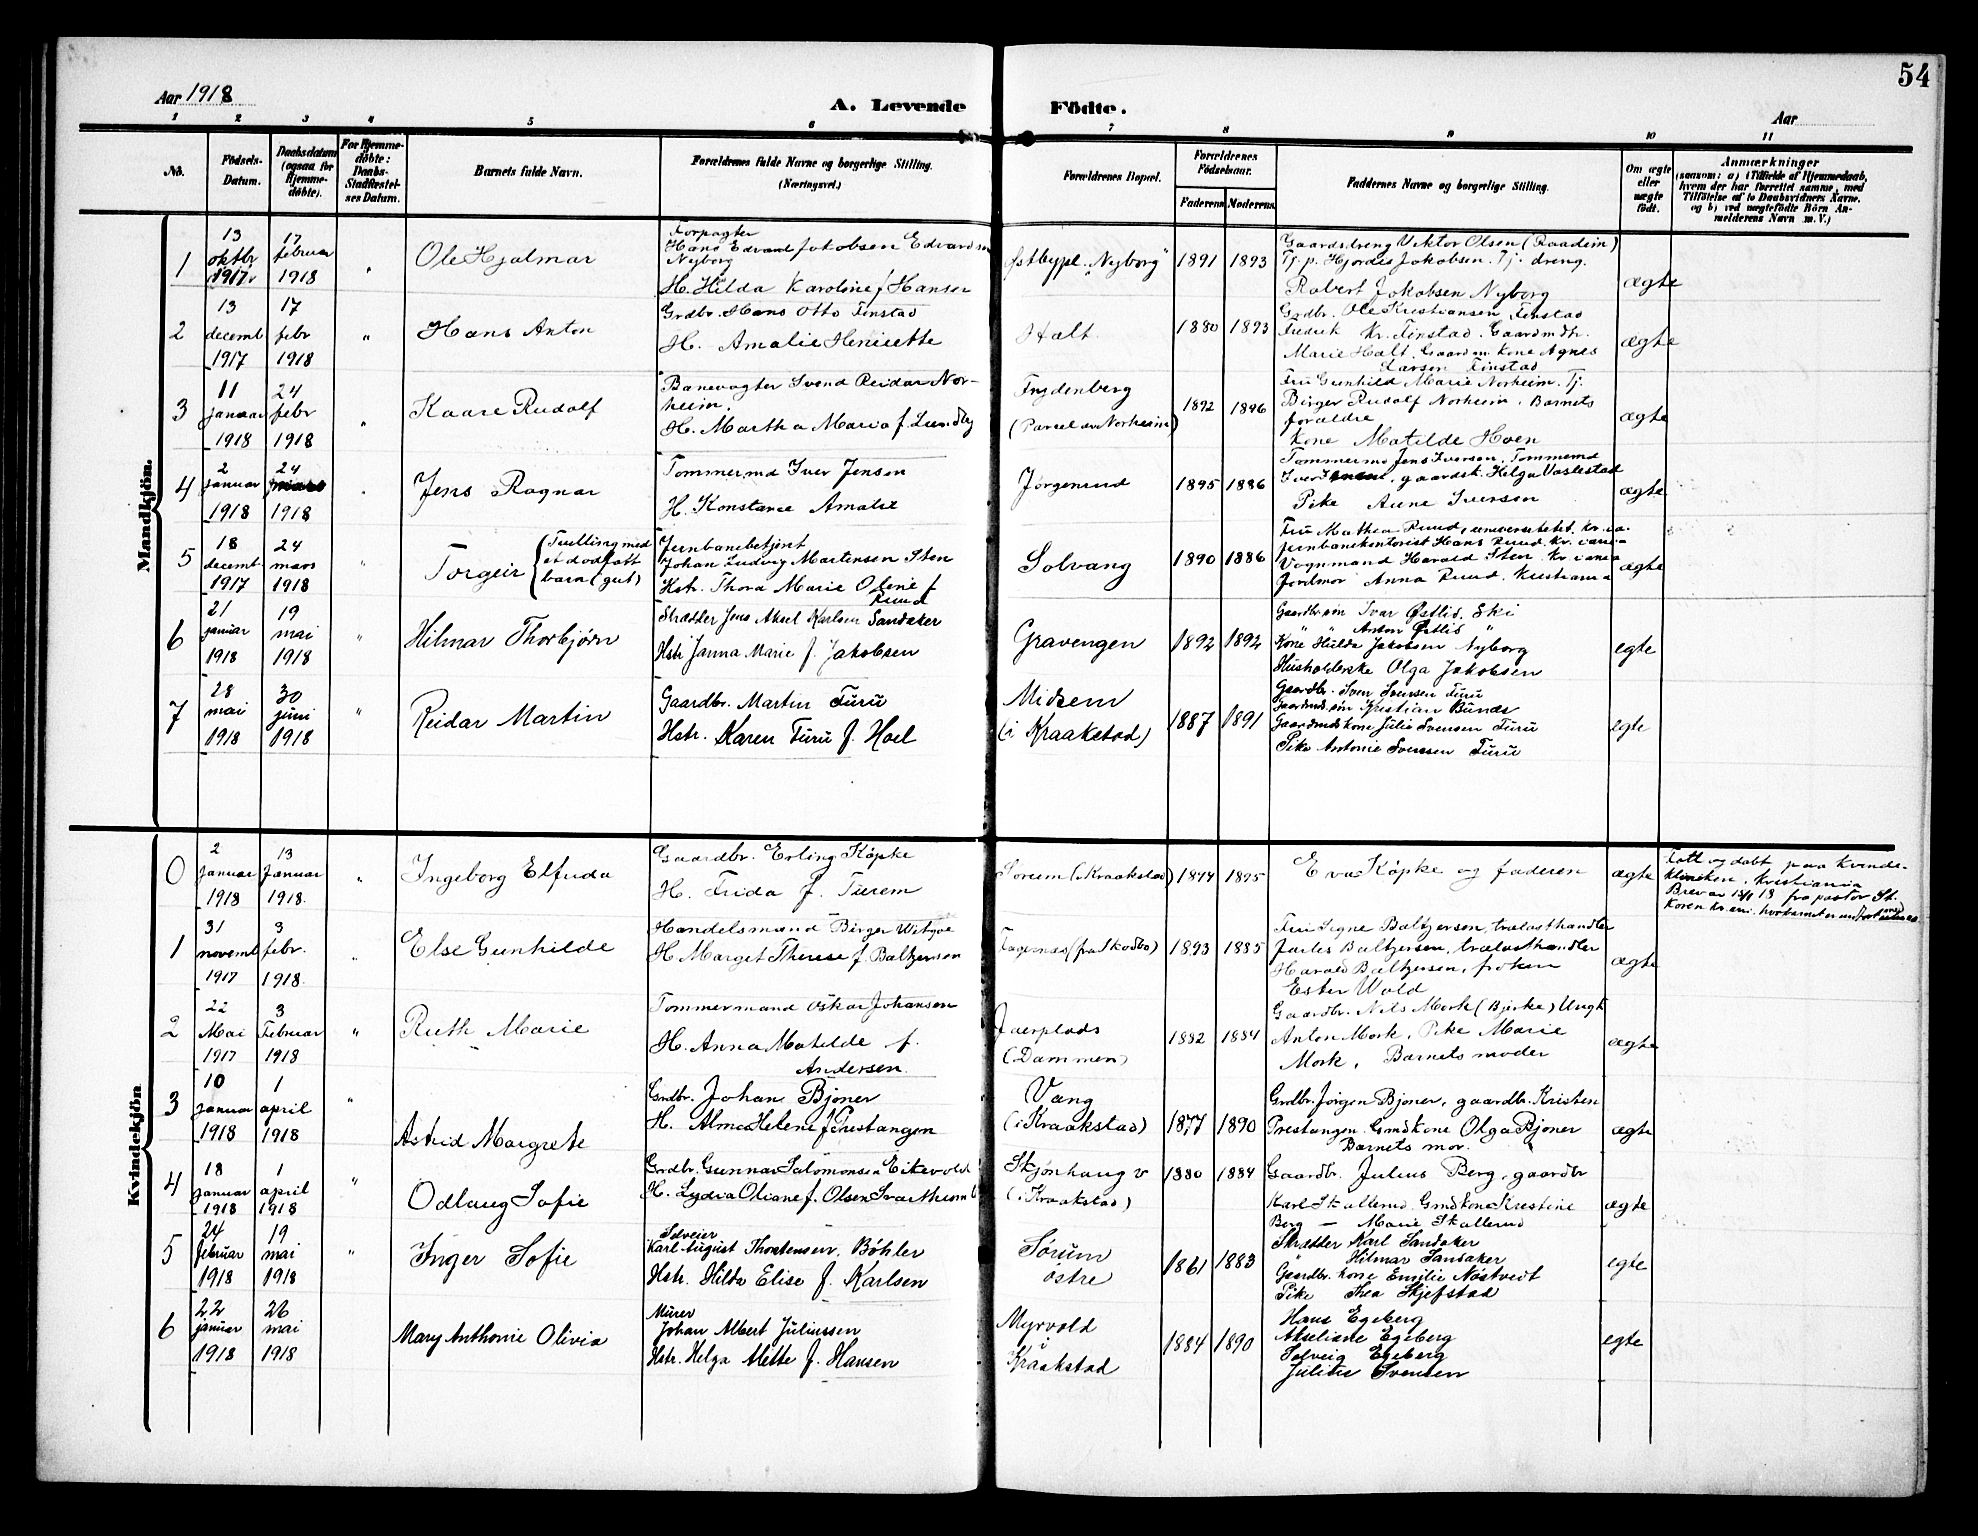 54
Aar 1918
A. Levende Födte.
Aar
1 2 3 4 5 6 7 8 9 10 11
No.
Födsels-Datum.
Daabsdatum (ogsaa for Hjemme-döbte).
For Hjemme-döbte: Daabs-Stadfæstel-ses Datum.
Barnets fulde Navn.
Forældrenes fulde Navne og borgerlige Stilling.
(Næringsvei.)
Forældrenes Bopæl.
Forældrenes Födselsaar.
Faderens Moderens
Faddernes Navne og borgerlige Stilling.
Om ægte eller uægte födt.
Anmærkninger
(saasom: a) i Tilfælde af Hjemmedaab,
hvem der har forrettet samme, med
Tilföielse af to Daabsvidners Navne.
og b) ved uægtefödte Börn An-
melderens Navn m. V.)
Mandkjön.
1
13 oktbr 1917
17 februar 1918
"
Ole Hjalmar
Forpagter
Hans Edvard Jakobsen Edvardsen
Nyborg
H. Hilda Karoline f Hansen
Østbypl. "Nyborg"
1891 1893
Gaardsdreng Viktor Olsen (Raadein)
Tj. p. Hjordis Jakobsen. Tj. dreng.
Robert Jakobsen Nyborg
ægte
2
13 decemb 1917
17 febr 1918
"
Hans Anton
Grdbr. Hans Otto Finstad
H. Amalie Henriette
Halt.
1880 1893
Grdbr. Ole Kristiansen Finstad
Fredrik Kr. Finstad. Gaardmdtr.
Marie Halt. Gaardm. kone Agnes
Larsen Finstad
ægte
3
11 januar 1918
24 febr 1918
"
Kaare Rudolf
Banevogter Svend Reidar Nor-
heim.
H. Martha Maria f. Lundby
Frydenberg
(Parcel av Norheim)
1892 1896
Fru Gunhild Marie Norheim. Tj.
Birger Rudolf Norheim. Barnets
forældre
Kone Matilde Hoen
ægte
4
2 januar 1918
24 1918
"
Jens Ragnar
Tømmermd Iver Jensen
H. Konstance Amalie
Jørgenrud
1895 1886
Tømmermd Jens Iversen, Tømmermd
Iver, gaardsk. Helga Vaslestad
Pike Anne Iversen
ægte
5
18 decemb 1917
24 mars 1918
"
Torgeir
(Tvilling med
et dødføtt
barn (gut)
Jernbanebetjent
Johan Ludvig Martinsen Sten
Hstr. Thora Marie Oline f
Ruud
Solvang
1890 1886
Fru Mathea Ruud, universitetet. Kr.ia.
jernbanekontorist Hans Ruud. Kr.iania
Vognmand Harald Sten. Kr.iania
Jordmor Anna Ruud. Kristiania
ægte
6
21 januar 1918
19 mai 1918
"
Hilmar Thorbjørn
Skrædder Jens Aksel Karlsen Sandaker
Hstr Janna Marie f. Jakobsen
Gravengen
1892 1892
Gaardbr.søn Ivar Østlid. Ski
" Anton Østlid "
Kone Hulda Jakobsen Nyborg
Husholderske Olga Jakobsen
egte
7
28 mai 1918
30 juni 1918
"
Reidar Martin
Gaardbr. Martin Furu
Hstr. Karen Furu f. Hoel
Midsem
(i Kraakstad)
1887 1891
Gaardbr. Sven Svensen Furu
Gaardmds.søn Kristian Bunds
Gaardmdskone Julie Svensen Furu
Pike Antonie Svensen Furu
egte
Kvindekjön
0
2 januar 1918
13 januar 1918.
"
Ingeborg Elfrida
Gaardbr. Erling Köpke
H. Frida f. Furem
Sorum (i Kraakstad)
1894 1895
Eva Köpke og faderen
ægte
Født og døbt paa Kvinde-
klinikken, Kristiania
Brev av 15/1 18 fra pastor St.
Koren
1
31 novemb 1917
3 febr. 1918.
"
Else Gunhilde
Handelsmand Birger Witzøe
H Marget Therese f. Baltzersen
Fagernes (fra Skodbo)
1893 1885
Fru Signe Baltzersen, trælasthandler
Jarles Baltzersen, trælasthandler
Harald Baltzersen, frøken
Ester Wold
ægte
2
22 Mai 1917
3 Februar 1918
"
Ruth Marie
Tømmermand Oskar Johansen
H. Anna Matilde f.
Andersen.
Jaerplads
(Dammen)
1882 1884
Gaardbr. Nils Mork (Bjerke) Ungk
Anton Mork, Pike Marie
Mork, Barnets moder
ægte
3
10 januar 1918
1 april 1918
"
Astrid Margrete
Grdbr. Johan Bjøner
H. Alma Helene f Prestangen
Vang
(i Kraakstad)
1877 1890
Grdbr. Jørgen Bjøner, gaardbr. Kristen
Prestangen. Gmdkone Olga Bjøner
Barnets mor.
ægte
4
18 januar 1918
1 april 1918
"
Odlaug Sofie
Grdbr. Gunnar Salomonsen Eikevold
H. Lydia Oliane f. Olsen Svarthumb
Skjønhaug v
(i Kraakstad)
1880 1884
Gaardbr. Julius Berg, gaardbr
Karl Skallerud. Gmdkone Kristine
Berg — Marie Skallerud
ægte
5
24 februar 1918
19 mai 1918
"
Inger Sofie
Selveier
Karl August Thorstensen. Bøhler
Hstr. Hilda Elise f. Karlsen
Sørum
østre
1861 1883
Skrædder Karl Sandaker
" Hilmar Sandaker
Gaardbr. kone Emilie Nöstvedt
Pike Thea Skjefstad
egte
6
22 januar 1918
26 mai 1918
Mary Anthonie Olivia
Murer
Johan Albert Juliussen
Hstr. Helga Mette f. Hansen
Myrvold
i
Kraakstad
1884 1890
Hans Egeberg
Akseliane Egeberg
Solveig Egeberg
Julius Svensen
egte